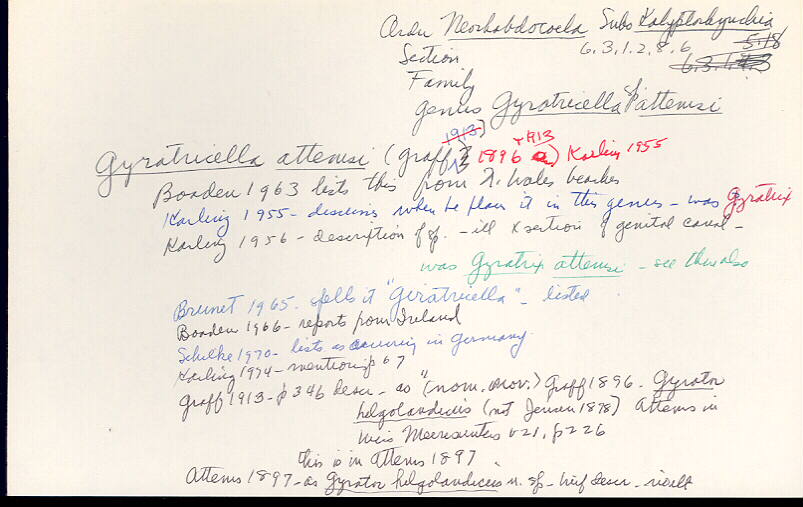 Order Neorhabdocoela Subo Kalyptorhynchia
6.3.1.2.8.6 5.18
Section
Family
genus Gyratricella P attemsi
1913)
Gyratricella attemsi (Graff 1896 + 1913 a) Karling 1955
Boaden 1963 lists this from N. Wales beaches
Karling 1955 - discusses when he places it in this genus - was Gyratrix
Karling 1956 - description of sp. - ill x section of genital canal -
was Gyratrix attemsi - see there also
Brunet 1965 - spells it "Giratricella" - listed
Boaden 1966 - reports from Ireland
Schilke 1970 - lists as occurring in Germany
Karling 1974 - mention p 67
Graff 1913 - p 346 descr - as "(nom. nov.) Graff 1896. Gyrator
helgolandicus (not Jensen 1878) Attems in
Wiss Meeresunters v21, p226
this is in Attems 1897.
Attems 1897 - as Gyrator helgolandicus n. sp - brief descr -